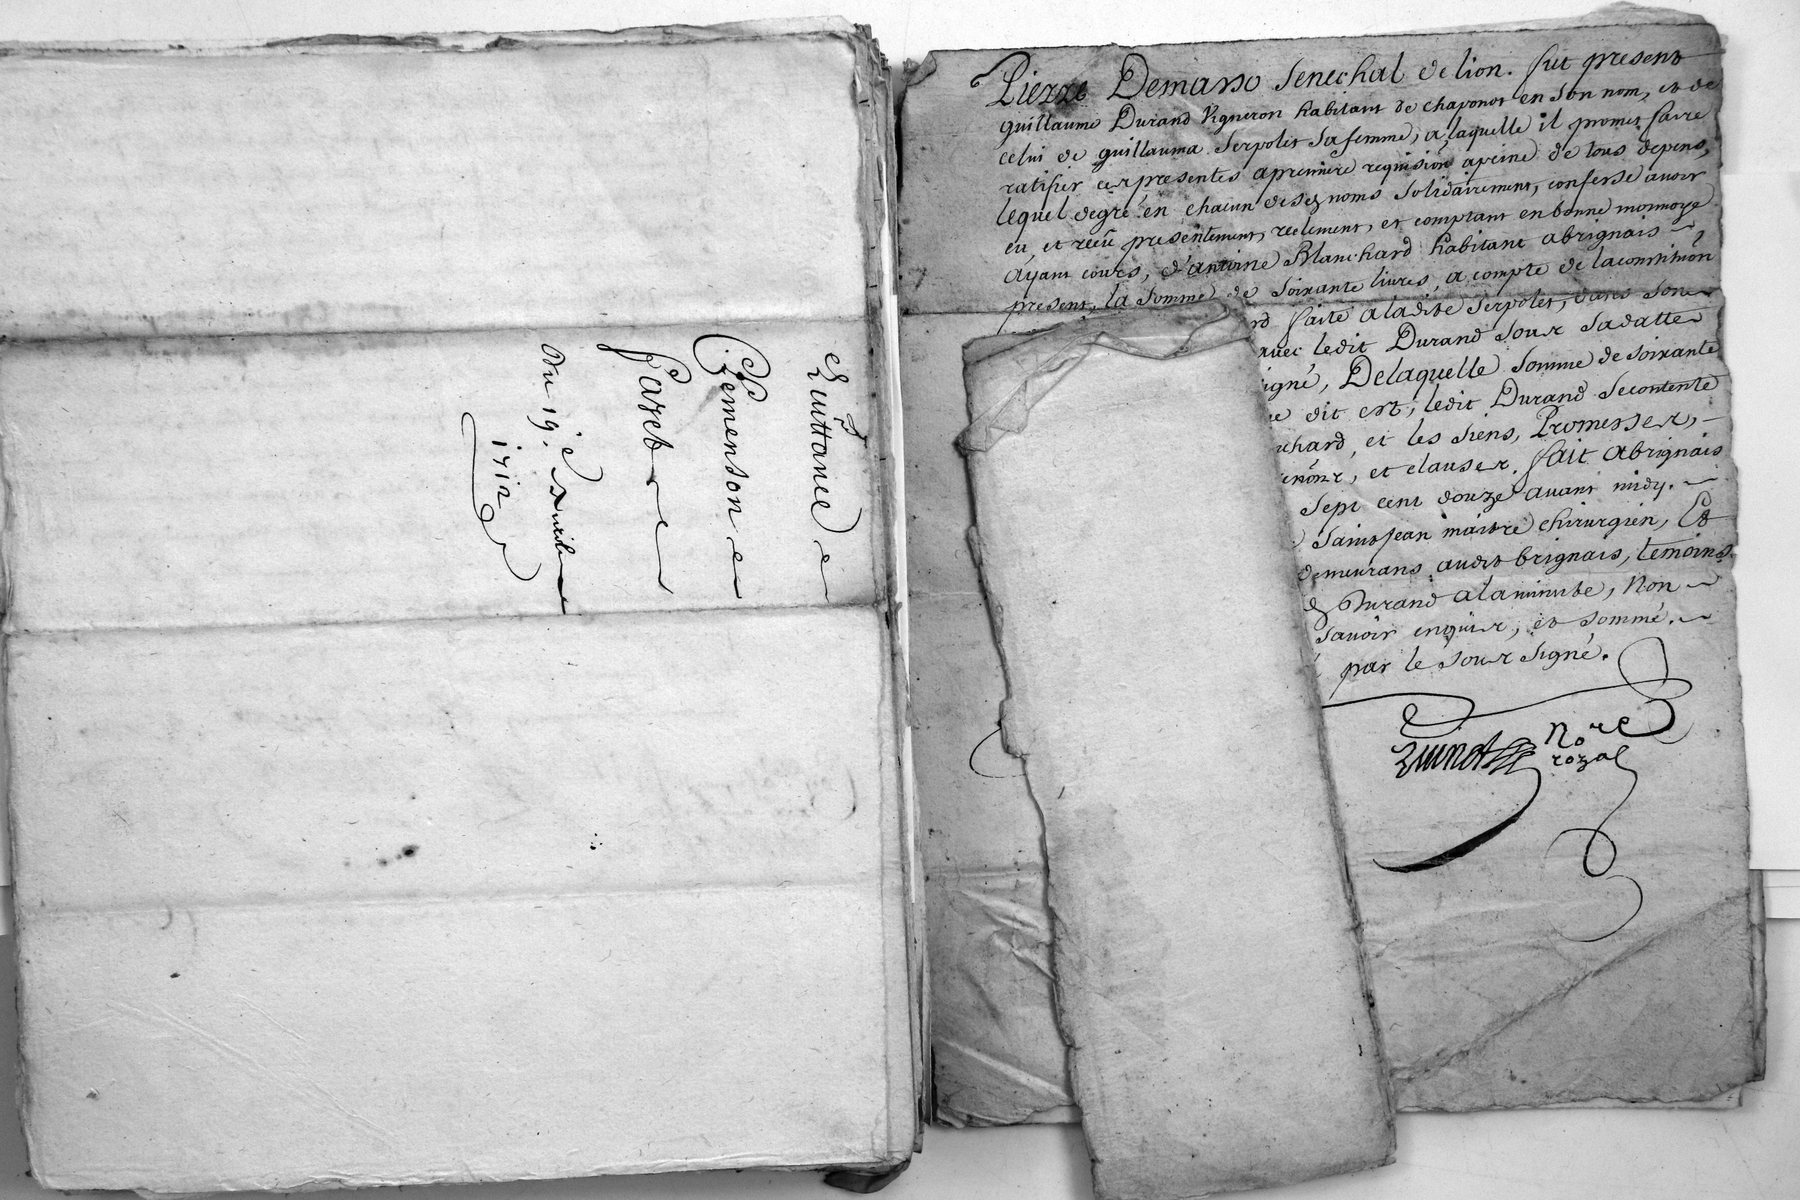 Quittance
Clemenson
Faret
Du 19.e
1712
Pierre Demasso Senechal de lion. fut present
guillaume Durand Vigneron habitant de chaponot en son nom, et de
celui de guillauma Serpolet sa femme, a laquelle il promet faire
ratifier ces presentes a premiere requision apeine de tous depens,
lequel degré en chacun desdez noms solidairement, confesse avoir
eu, et receu presentement, reelement, et comptant en bonne monnoye
ayant cours, d'antoine Blanchard habitant abrignais
present, la somme de soixante livres, a compte de la constitution
rd faite a ladite Serpolet, dans son
avec ledit Durand sous sa datte
igné, Delaquelle somme de soixante
e dit est, ledit Durand se contente
chard, et les siens, Promesses,
et clauses. fait abrignais
sept cent douze avant midy.
Saint jean maitre chirurgien, Et
demeurans audit brignais, temoins
Durand a la minute, Non
savoir enquis, et sommé.
par le sous signé.
No re
royal